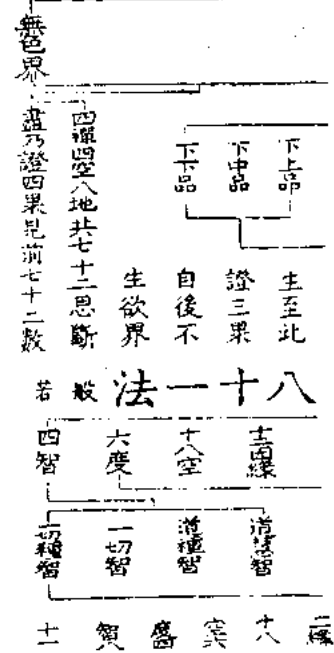 下上品
下中品
下下品
無色界
生至此
證三果
自後不
生欲界
四禪四空八地共七十二思斷
盡乃證四果見前七十二數
八十一法
般若
十二因緣
十八空
六度
四智
道慧智
道種智
一切智
一切種智
二緣
十八
空六
度四
智八
十一